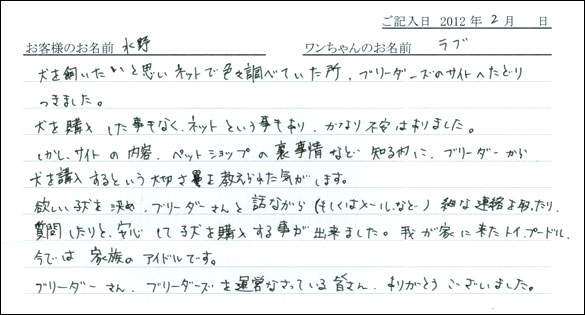 ご記入日 2012 年 2 月 日
お客様のお名前 水野 ワンちゃんのお名前 ラブ
犬を飼いたいと思いネットで色々調べていた所、ブリーダーズのサイトへたどり
つきました。
犬を購入した事もなく、ネットという事もあり、かなり不安はありました。
しかし、サイトの内容、ペットショップの裏事情など知る内に、ブリーダーから
犬を購入するという大切さを教えられた気がします。
欲しい子犬を決め、ブリーダーさんと話ながら(もしくはメールなど)細な連絡を取ったり、
質問したりと、安心して子犬を購入する事が出来ました。我が家に来たトイ、プードル、
今では家族のアイドルです。
ブリーダーさん、ブリーダーズを運営なさっている皆さん、ありがとうございました。